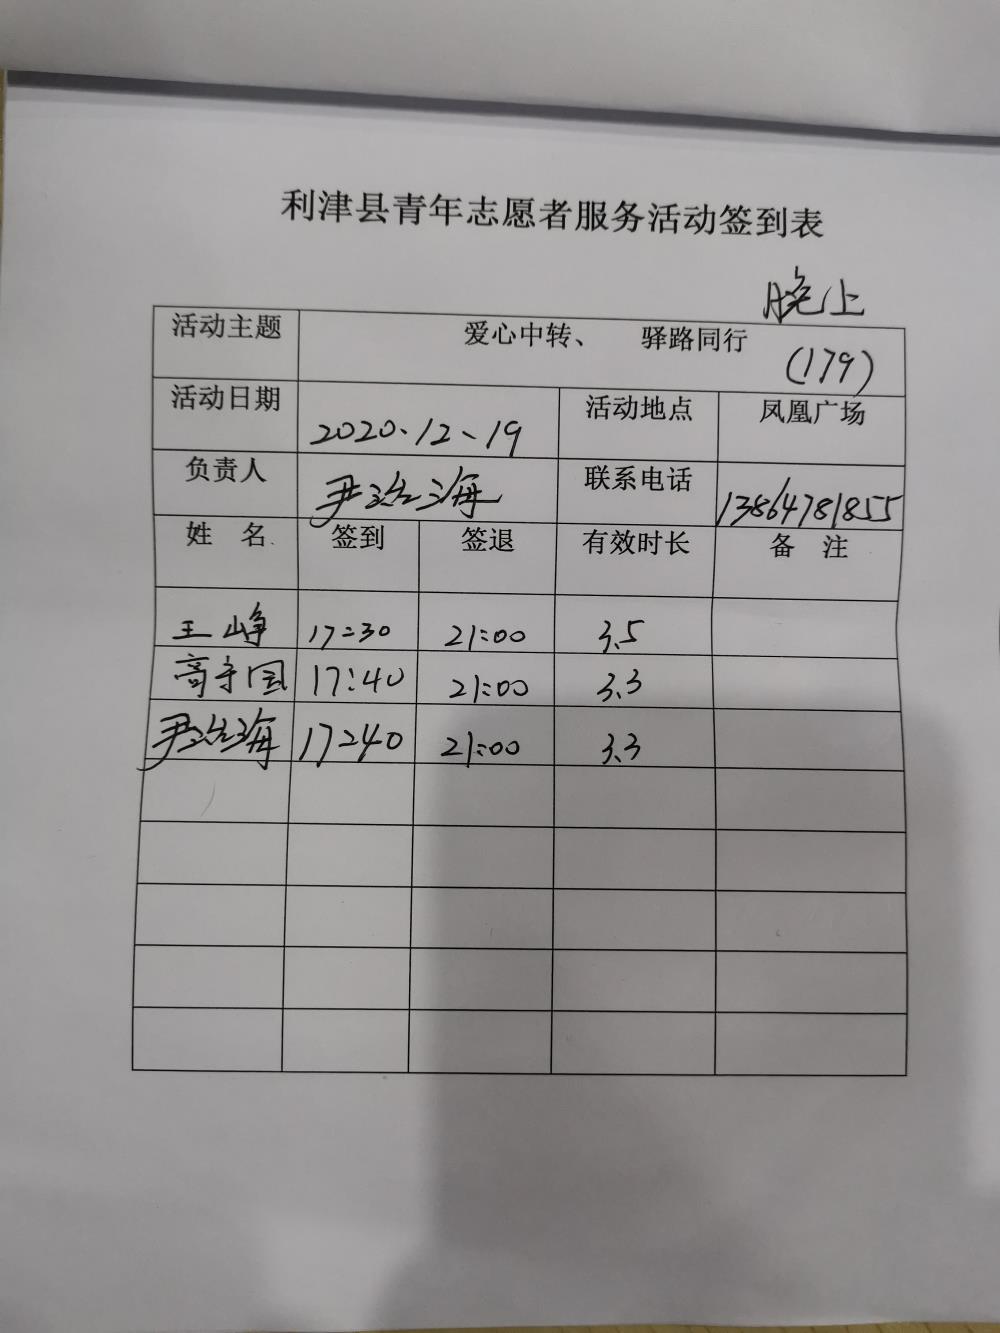 利津县青年志愿者服务活动签到表
晚上
活动主题 爱心中转、 驿路同行 (179)
活动日期 2020、12、19 活动地点 凤凰广场
负责人 尹治海 联系电话 13864781855
姓 名 签到 签退 有效时长 备 注
王峥 17:30 21:00 3.5
高守国 17:40 21:00 3.3
尹治海 17:40 21:00 3.3